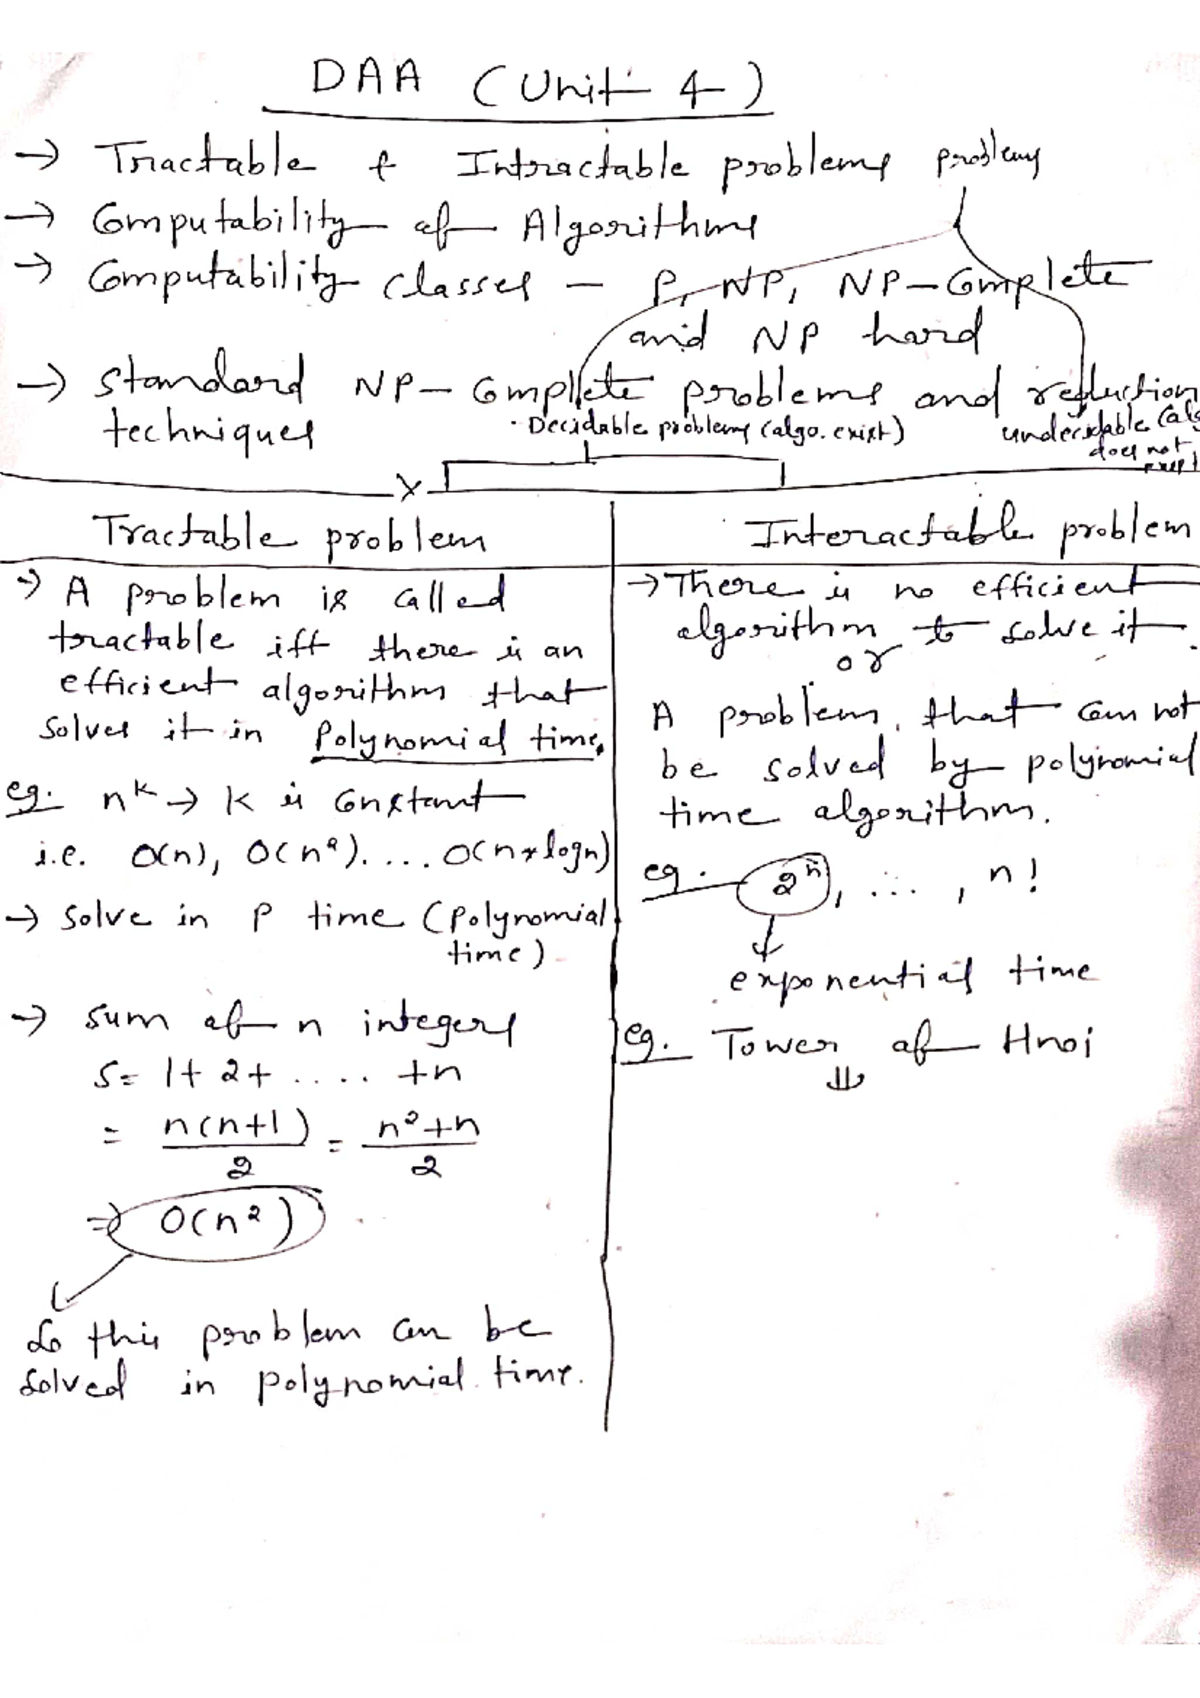 DAA (Unit 4)
→ Tractable & Intractable problems problems
→ Computability of Algorithms
→ Computability classes — P, NP, NP-Complete
and NP hard
→ Standard NP-Complete problems and reduction
techniques
· Decidable problems (algo. exist)
undecidable (alg
does not
exist
x
Tractable problem
→ A problem is called
tractable iff there is an
efficient algorithm that
solves it in Polynomial time.
eg. n^k → k is constant
i.e. O(n), O(n²). ... O(n*logn)
→ Solve in P time (Polynomial
time)
→ sum of n integers
S= 1+2+ .... +n
= n(n+1)/2 = n²+n/2
⇒ O(n²)
So this problem can be
solved in polynomial time.
Interactable problem
→ There is no efficient
algorithm to solve it.
or
A problem, that can not
be solved by polynomial
time algorithm.
eg. 2^n, ..., n!
exponential time
eg. Tower of Hnoi
⇓